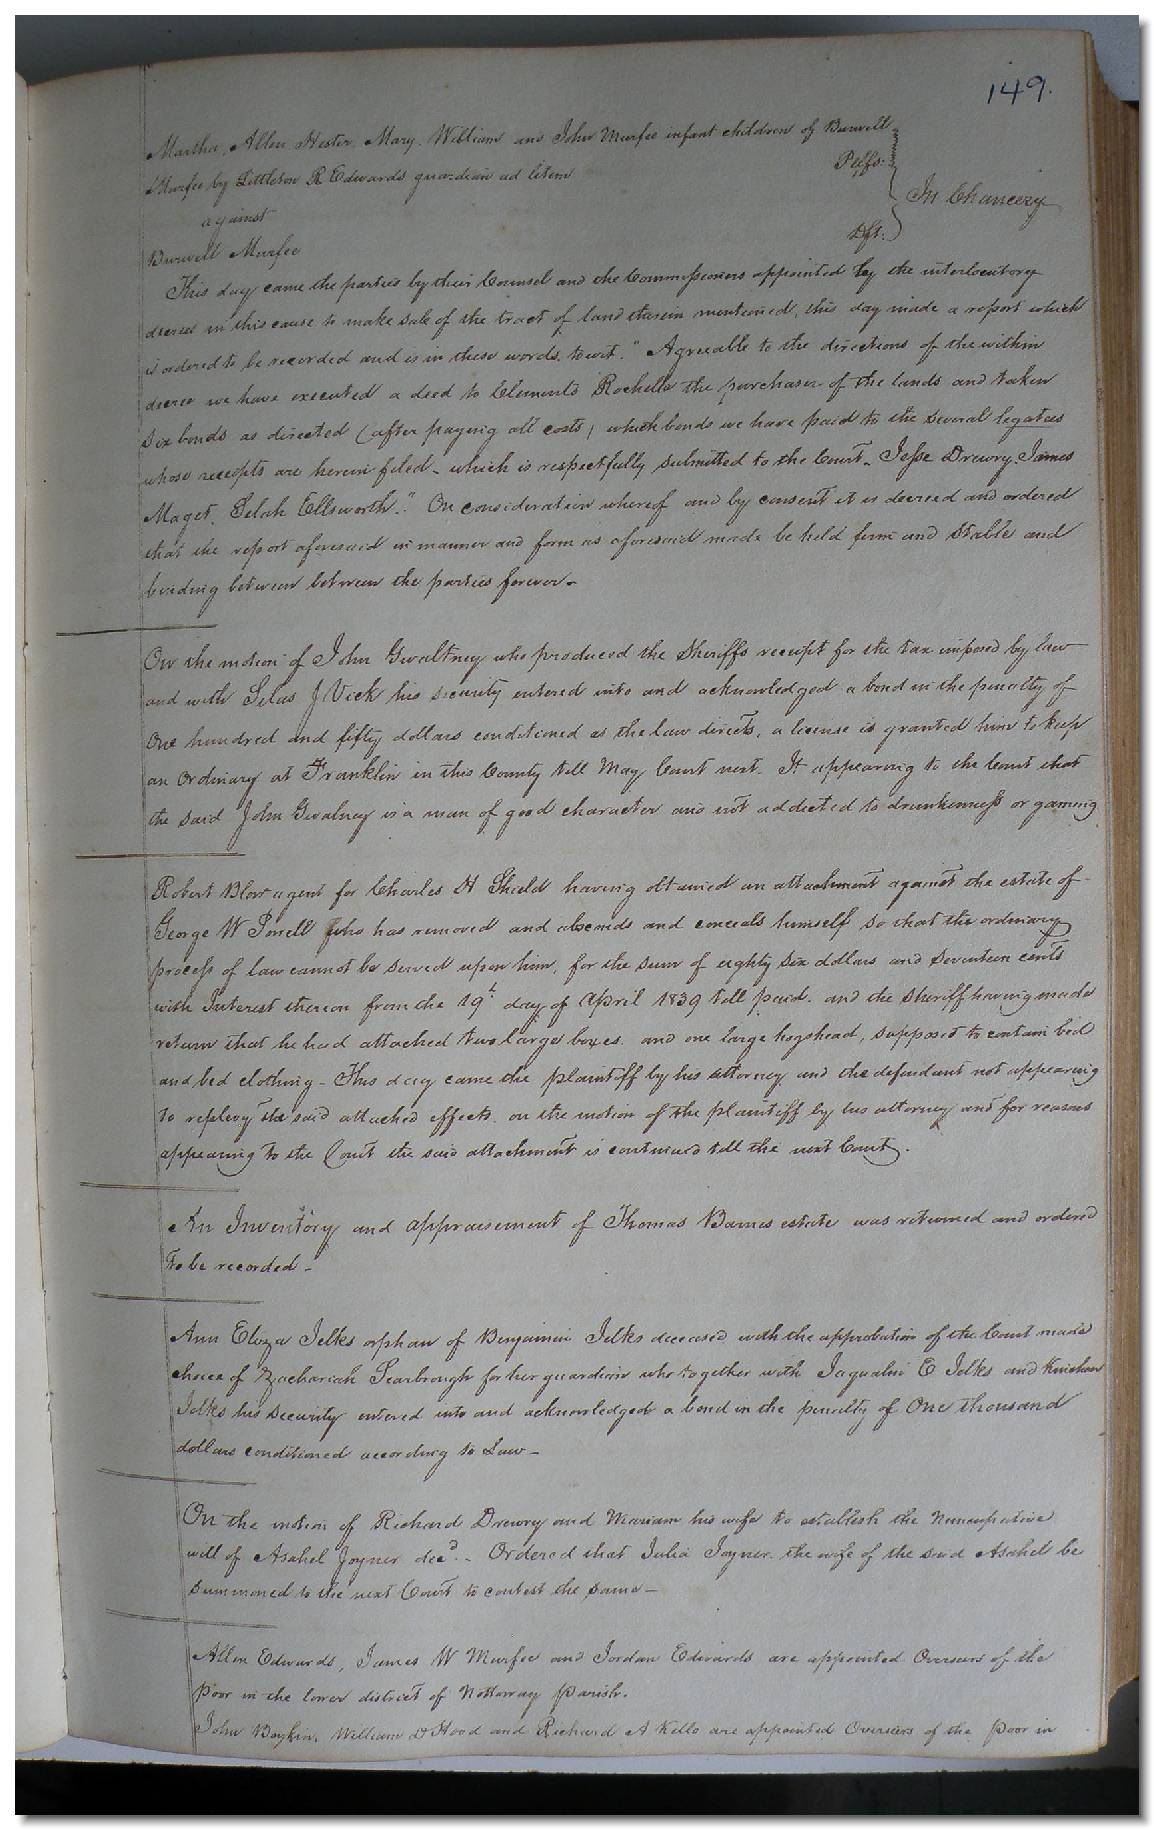 149.
Martha, Allen, Hester, Mary, William and John Murfee infant children of Burwell
Murfee by Littleton R Edwards guardian ad litem Pltfs.
against In Chancery
Burwell Murfee Dft.
This day came the parties by their Counsel and the Commissioners appointed by the interlocutory
decree in this cause to make sale of the tract of land therein mentioned, this day made a report which
is ordered to be recorded and is in these words, towit. "Agreeable to the directions of the within
decree we have executed a deed to Clements Rochelle the purchaser of the lands and taken
six bonds as directed (after paying all costs) which bonds we have paid to the several legatees
whose receipts are herein filed - which is respectfully submitted to the Court. Jesse Drewry. James
Maget. Selah Ellsworth". On consideration whereof and by consent it is decreed and ordered
that the report aforesaid in manner and form as aforesaid made be held firm and stable and
binding between between the parties forever -
On the motion of John Gwaltney who produced the Sheriffs receipt for the tax imposed by law
and with Silas J Vick his security entered into and acknowledged a bond in the penalty of
One hundred and fifty dollars conditioned as the law directs, a license is granted him to keep
an Ordinary at Franklin in this County till May Court next. It appearing to the Court that
the said John Gwalney is a man of good character and not addicted to drunkenness or gaming
Robert Blow agent for Charles H Shield having obtained an attachment against the estate of
George W Powell who has removed and absconds and conceals himself so that the ordinary
process of law cannot be served upon him, for the sum of eighty six dollars and seventeen cents
with Interest thereon from the 19th day of April 1839 till paid. and the sheriff having made
return that he had attached two large boxes. and one large hogshead, supposed to contain bed
and bed clothing - This day came the plaintiff by his attorney and the defendant not appearing
to replevy the said attached effects. on the motion of the plaintiff by his attorney and for reasons
appearing to the Court the said attachment is continued till the next Court.
An Inventory and appraisement of Thomas Barnes estate was returned and ordered
to be recorded -
Ann Eliza Jelks orphan of Benjamin Jelks deceased with the approbation of the Court made
choice of Zachariah Scarbrough for her guardian who together with E Jelks and
Jelks his security entered into and acknowledged a bond in the penalty of One thousand
dollars conditioned according to Law -
On the motion of Richard Drewry and Mariam his wife to establish the Nuncupative
will of Asahel Joyner decd. - Ordered that Julia Joyner. the wife of the said Asahel be
summoned to the next Court to contest the same -
Allen Edwards, James W Murfee and Jordan Edwards are appointed Overseers of the
poor in the lower district of Nottoway Parish.
John Boykin, William D Hood and Richard A Kello are appointed Overseers of the poor in